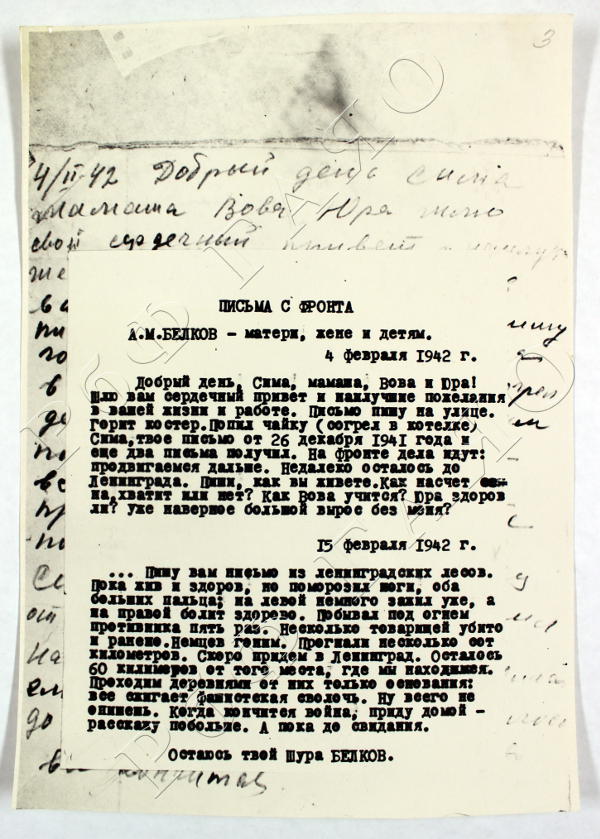 3
4/II-42 Добрый день Сима
Мамаша Вова Юра шлю
свой сердечный привет и
же
ва
пи
го
в
де
по
вс
пр
по
Се
от
На
ем
до
ПИСЬМА С ФРОНТА
А.М.БЕЛКОВ - матери, жене и детям.
4 февраля 1942 г.
Добрый день, Сима, мамаша, Вова и Юра!
Шлю вам сердечный привет и наилучшие пожелания
в вашей жизни и работе. Письмо пишу на улице.
Горит костер. Попил чайку (согрел в котелке)
Сима,твое письмо от 26 декабря 1941 года и
еще два письма получил. На фронте дела идут:
продвигаемся дальше. Недалеко осталось до
Ленинграда. Пиши, как вы живете.Как насчет се-
на,хватит или нет? Как Вова учится? Юра здоров
ли? Уже наверное большой вырос без меня?
15 февраля 1942 г.
... Пишу вам письмо из ленинградских лесов.
Пока жив и здоров, но поморозил ноги, оба
больших пальца; на левой немного зажил уже, а
на правой болит здорово. Побывал под огнем
противника пять раз. Несколько товарищей убито
и ранено.Немцев гоним. Прогнали несколько сот
километров. Скоро придем в Ленинград. Осталось
60 километров от того места, где мы находимся.
Проходим деревнями от них только основания:
все сжигает фашистская сволочь. Ну всего не
опишешь. Когда кончится война, приду домой -
расскажу побольше. А пока до свидания.
Остаюсь твой Шура БЕЛКОВ.